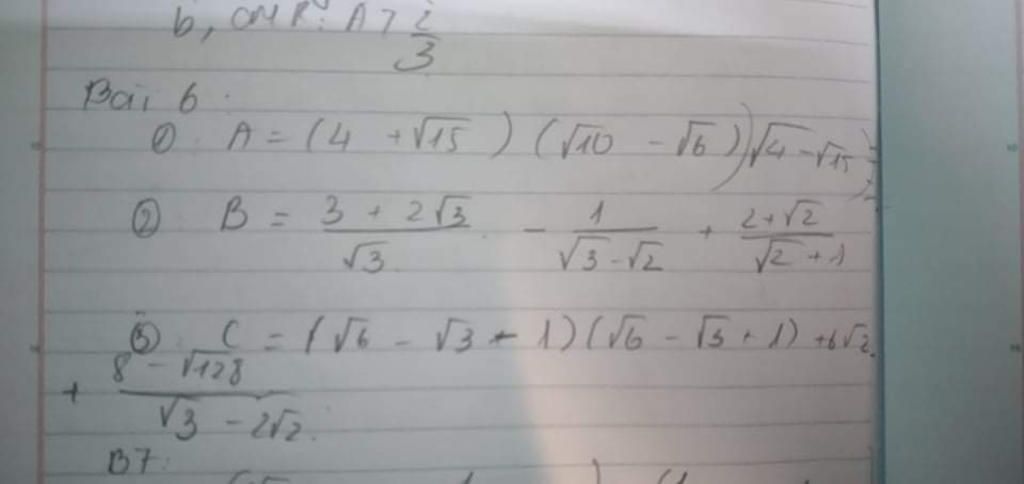 b, CMR: A > 2/3
Bài 6:
① A = (4 + √15) (√10 - √6) √(4 - √15)
② B = (3 + 2√3)/√3 - 1/(√3 - √2) + (2 + √2)/(√2 + 1)
③ C = (√6 - √3 + 1)(√6 - √3 + 1) + 6√2
+ (8 - √128)/√(3 - 2√2).
B7: